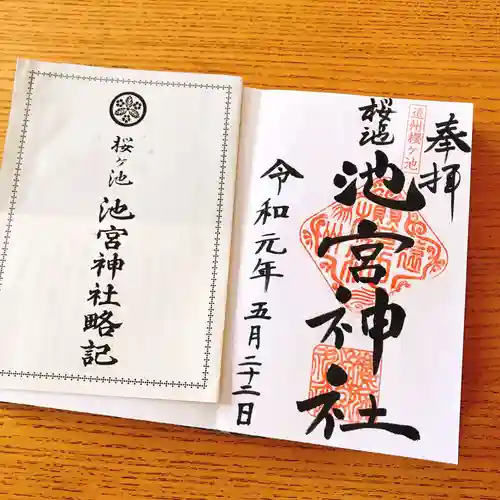 桜ヶ池
池宮神社略記
奉拝
遠州桜ヶ池
桜ヶ池
池宮神社
令和元年
五月二十二日